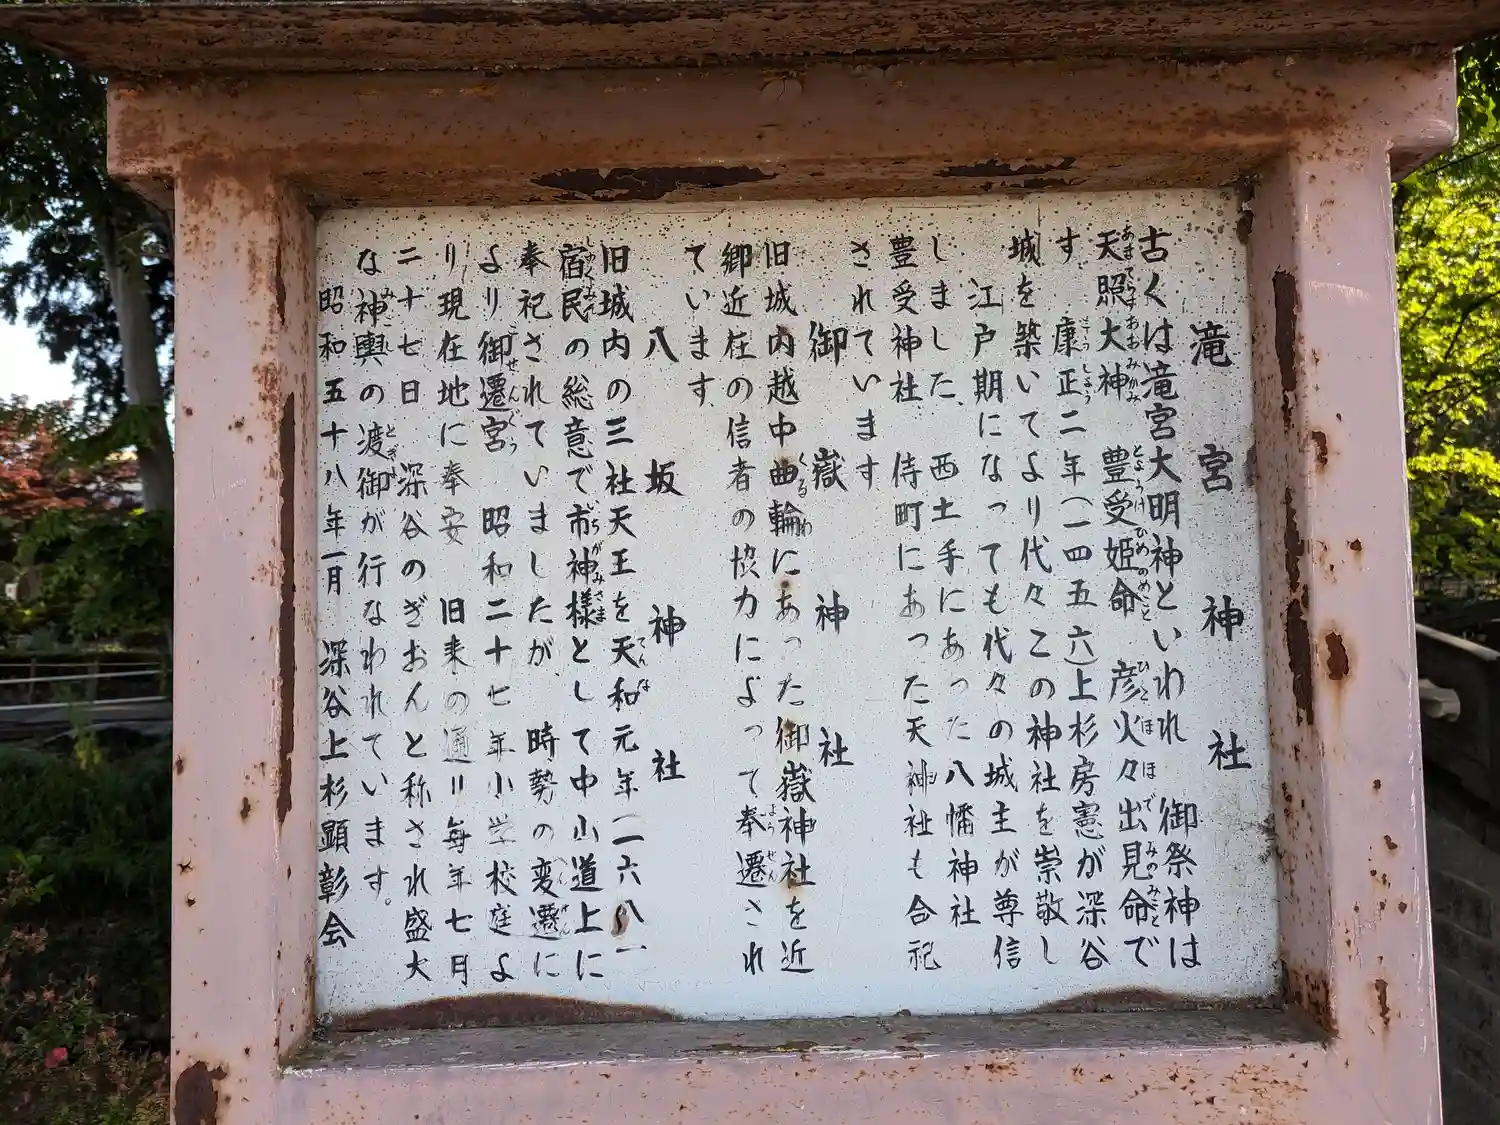 滝宮神社
古くは滝宮大明神といわれ 御祭神は
天照大神 豊受姫命 彦火々出見命で
す 康正二年(一四五六)上杉房憲が深谷
城を築いてより代々この神社を崇敬し
江戸期になっても代々の城主が尊信
しました 西土手にあった八幡神社
豊受神社 侍町にあった天神社も合祀
されています
御嶽神社
旧城内越中曲輪にあった御嶽神社を近
郷近在の信者の協力によって奉遷され
ています
八坂神社
旧城内の三社天王を天和元年(一六八一
宿民の総意で市神様として中山道上に
奉祀されていましたが 時勢の変遷に
より御遷宮 昭和二十七年小学校庭よ
り現在地に奉安 旧来の通り毎年七月
二十七日 深谷のぎおんと称され盛大
な神輿の渡御が行なわれています。
昭和五十八年一月 深谷上杉顕彰会